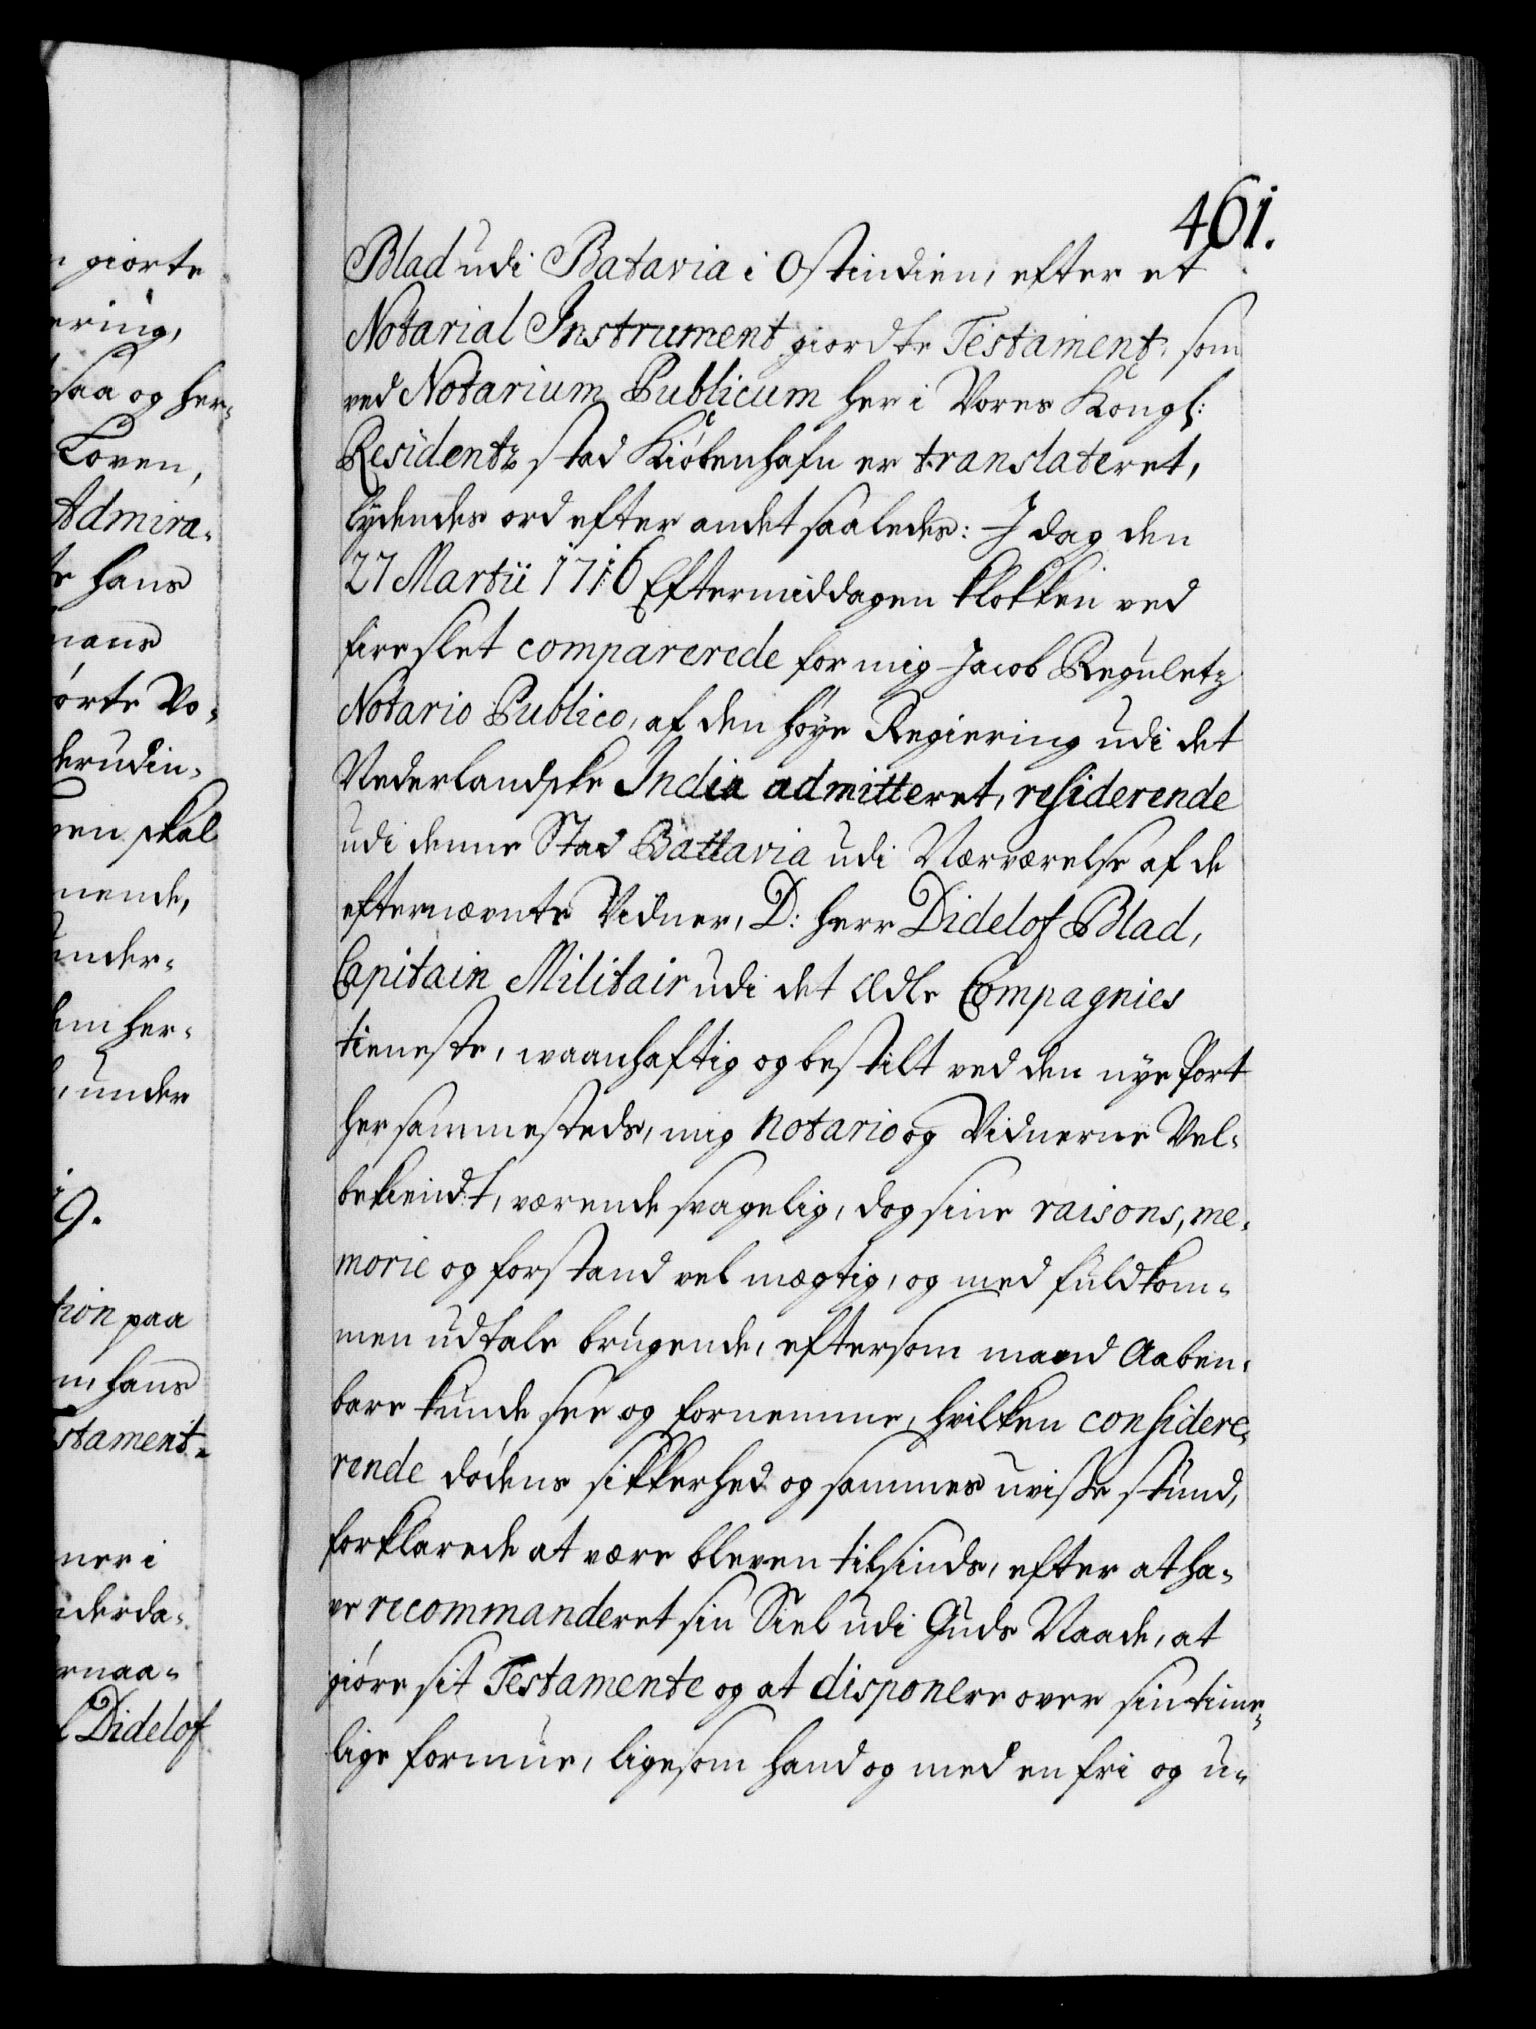 461.
Blad udi Batavia i Ostindien, efter et
Notarial Instrument giordte Testament, som
ved Notarium Publicum her i Vores Kongl:
Residentz stad Kiöbenhafn er translateret,
lydendes ord efter andet saaledes: I dag den
27 Martii 1716 Eftermiddagen klokken ved
fire slet comparerede for mig Jacob Reguletz
Notario Publico, af den høye Regiering udi det
Nederlandske India admitteret, residerende
udi denne Stad Battavia udi Nærværelse af de
efternævnte Vidner, D: Herr Didelof Blad,
Capitain Militair udi det Ædle Compagnies
tieneste, waanhaftig og bestilt ved den nye Port
her sammesteds, mig Notario og Vidnerne Vel-
bekiendt, værende svagelig, dog sine raisons, me-
morie og forstand vel mægtig, og med fuldkom-
men udtale brugende, eftersom mand Aaben-
bare kunde see og fornemme, hvilken considere-
rende dødens sikkerhed og sammes uvisse stund,
forklarede at være bleven tilsinds, efter at ha-
ve recommanderet sin Siel udi Guds Naade, at
giøre sit Testamente og at disponere over sin time-
lige formue, ligesom hand og med en fri og u-
giorte
ering,
saa og her-
Loven,
Admira-
hans
ørte Vo-
derudin-
skal
nende,
under-
her-
under
19.
tion paa
hans
stament-
ner i
nderda-
Didelof